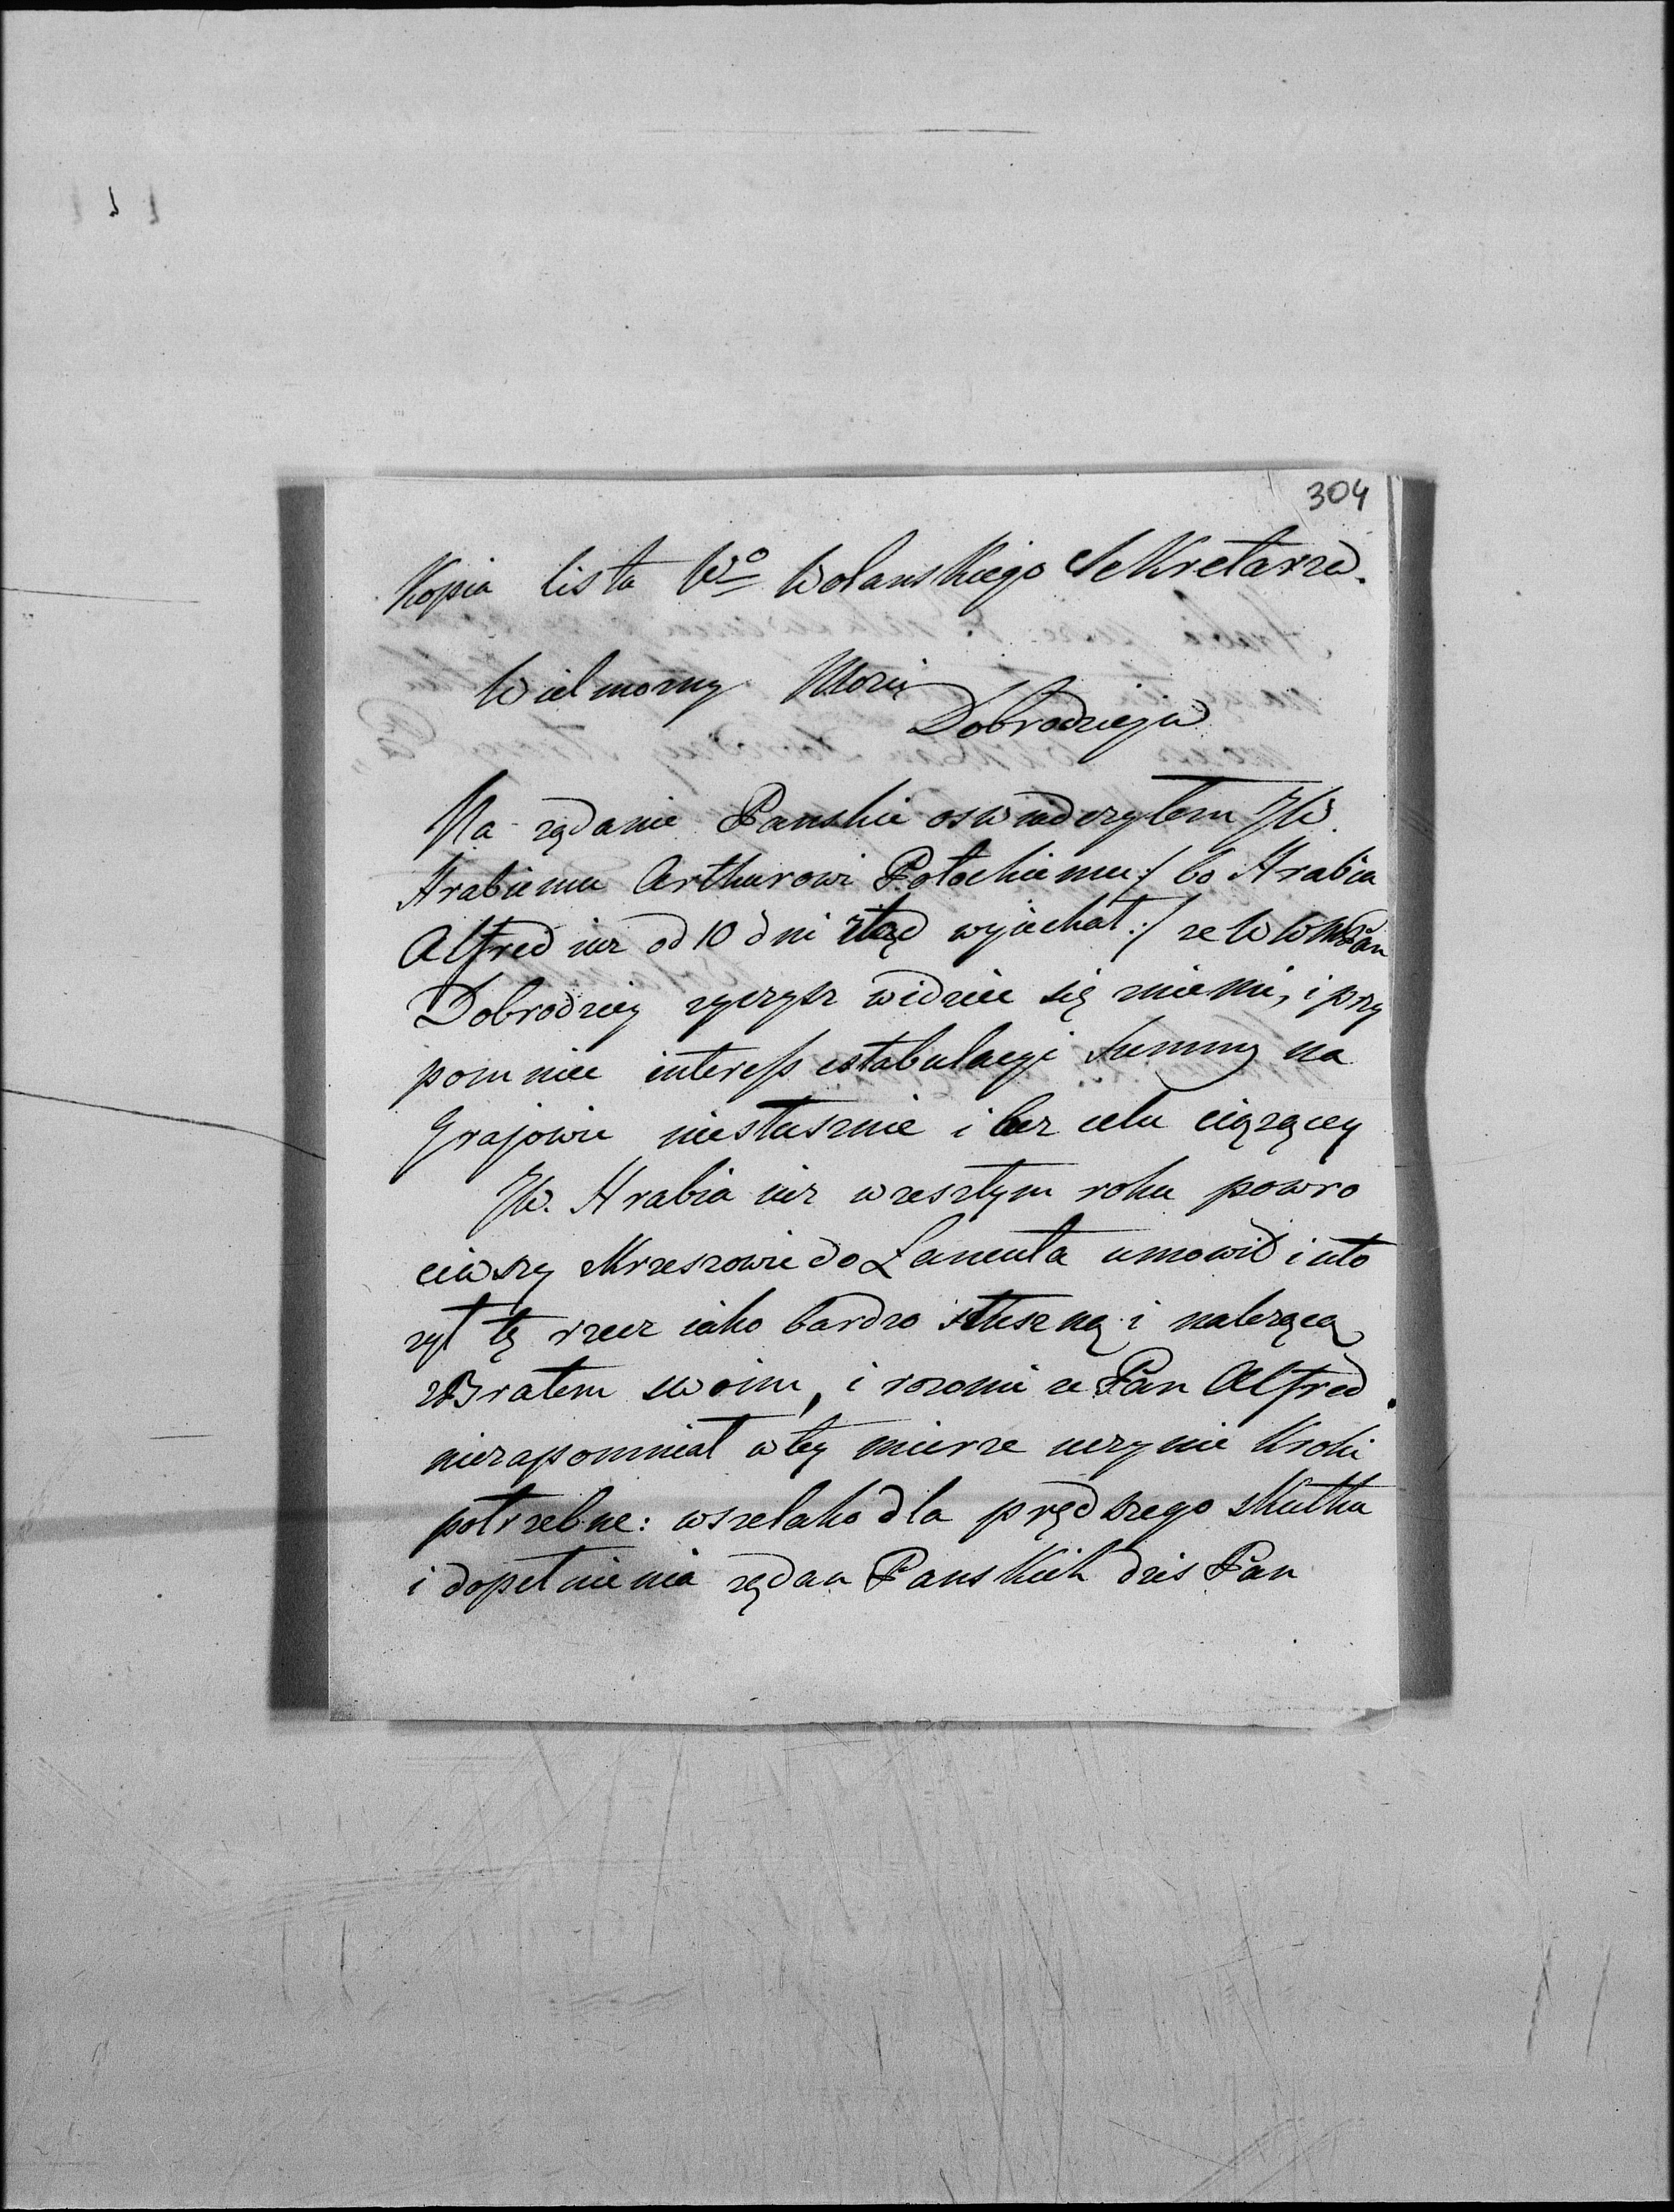 304
Kopia listu Wo Wolanskiego Sekretarza.
Wielmozny Mosci
Dobrodzieju
Na ządanie Panskie oswiadczyłem JW.
Hrabiemu Arthurowi Potockiemu /: bo Hrabia
Alfred iuz od 10 dni ztąd wyiechał :/ ze WWMPan
Dobrodziey zyczysz widziec się zniemi, i przy
pomniec interess estabulacyi Summy na
Grajowie niesłusznie i bez celu ciązącey
JW. Hrabia iuz wzeszłym roku powro
ciwszy zKrzeszowic do Łancuta umowił i uło
zył tę rzecz iako bardzo słuszną i nalezącą
zBratem swoim, i rozumi ze Pan Alfred
niezapomniał wtey mierze uczynic Kroki
potrzebne: wszelako dla prędszego skutku
i dopełnienia ządan Panskich dzis Pan